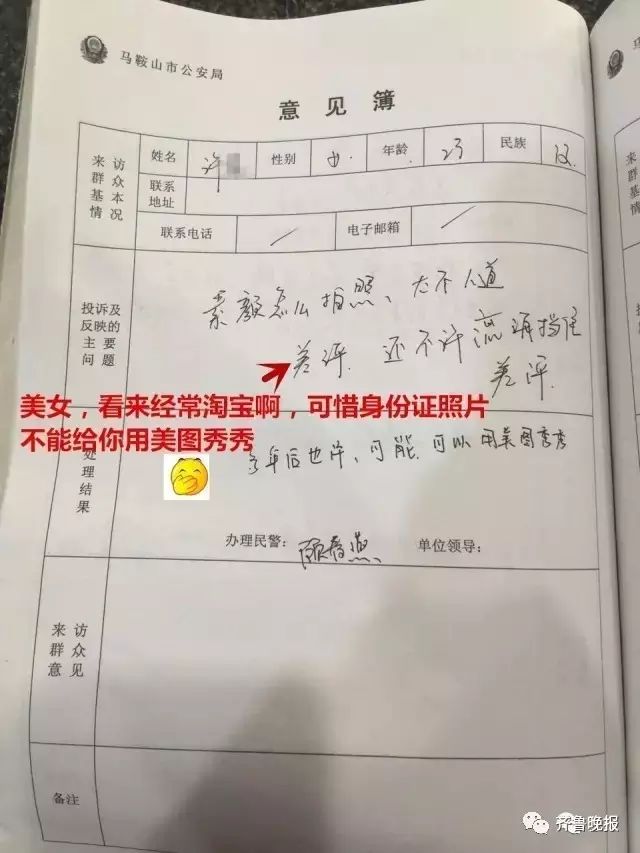 马鞍山市公安局
意见簿
来访群众基本情况
姓名 许 性别 女 年龄 23 民族 汉
联系地址
联系电话 / 电子邮箱 /
投诉及反映的主要问题
素颜怎么拍照、太不人道
差评. 还不许流海挡住
差评.
美女，看来经常淘宝啊，可惜身份证照片
不能给你用美图秀秀
处理结果
多年后也许，可能，可以用美图秀秀
办理民警： 顾春燕 单位领导：
来访群众意见
备注
齐鲁晚报